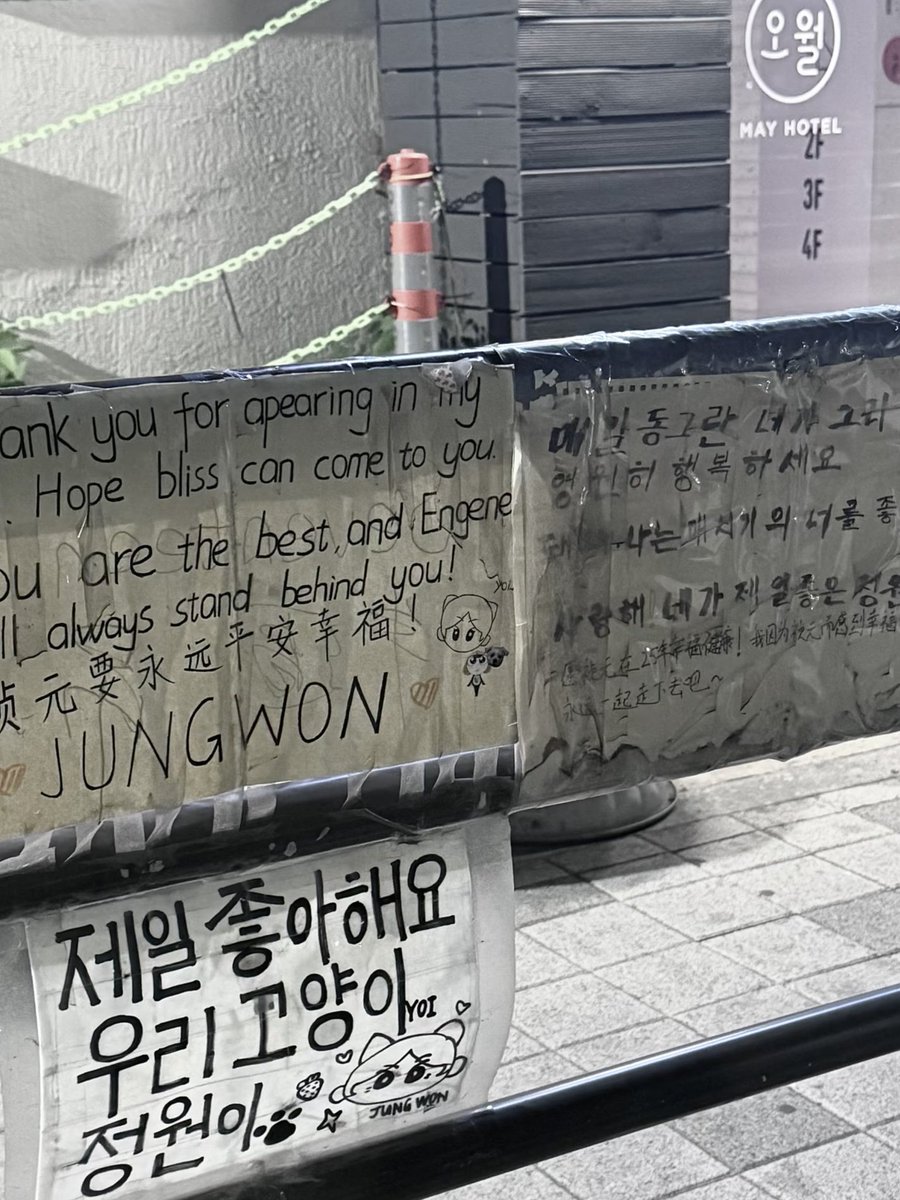 오월
MAY HOTEL
2F
3F
4F
ank you for apearing in my
. Hope bliss can come to you.
ou are the best, and Engene
ll always stand behind you!
祯元要永远平安幸福!
JUNGWON
매일 동그란 네가 그리
영원히 행복하세요
나는 패시기의 너를 좋
사랑해 네가 제일 좋은 정원
元在25年幸福健康! 我因为祯元而感到幸福
永远一起走下去吧~
제일 좋아해요
우리 고양이
YOI
정원이
JUNGWON